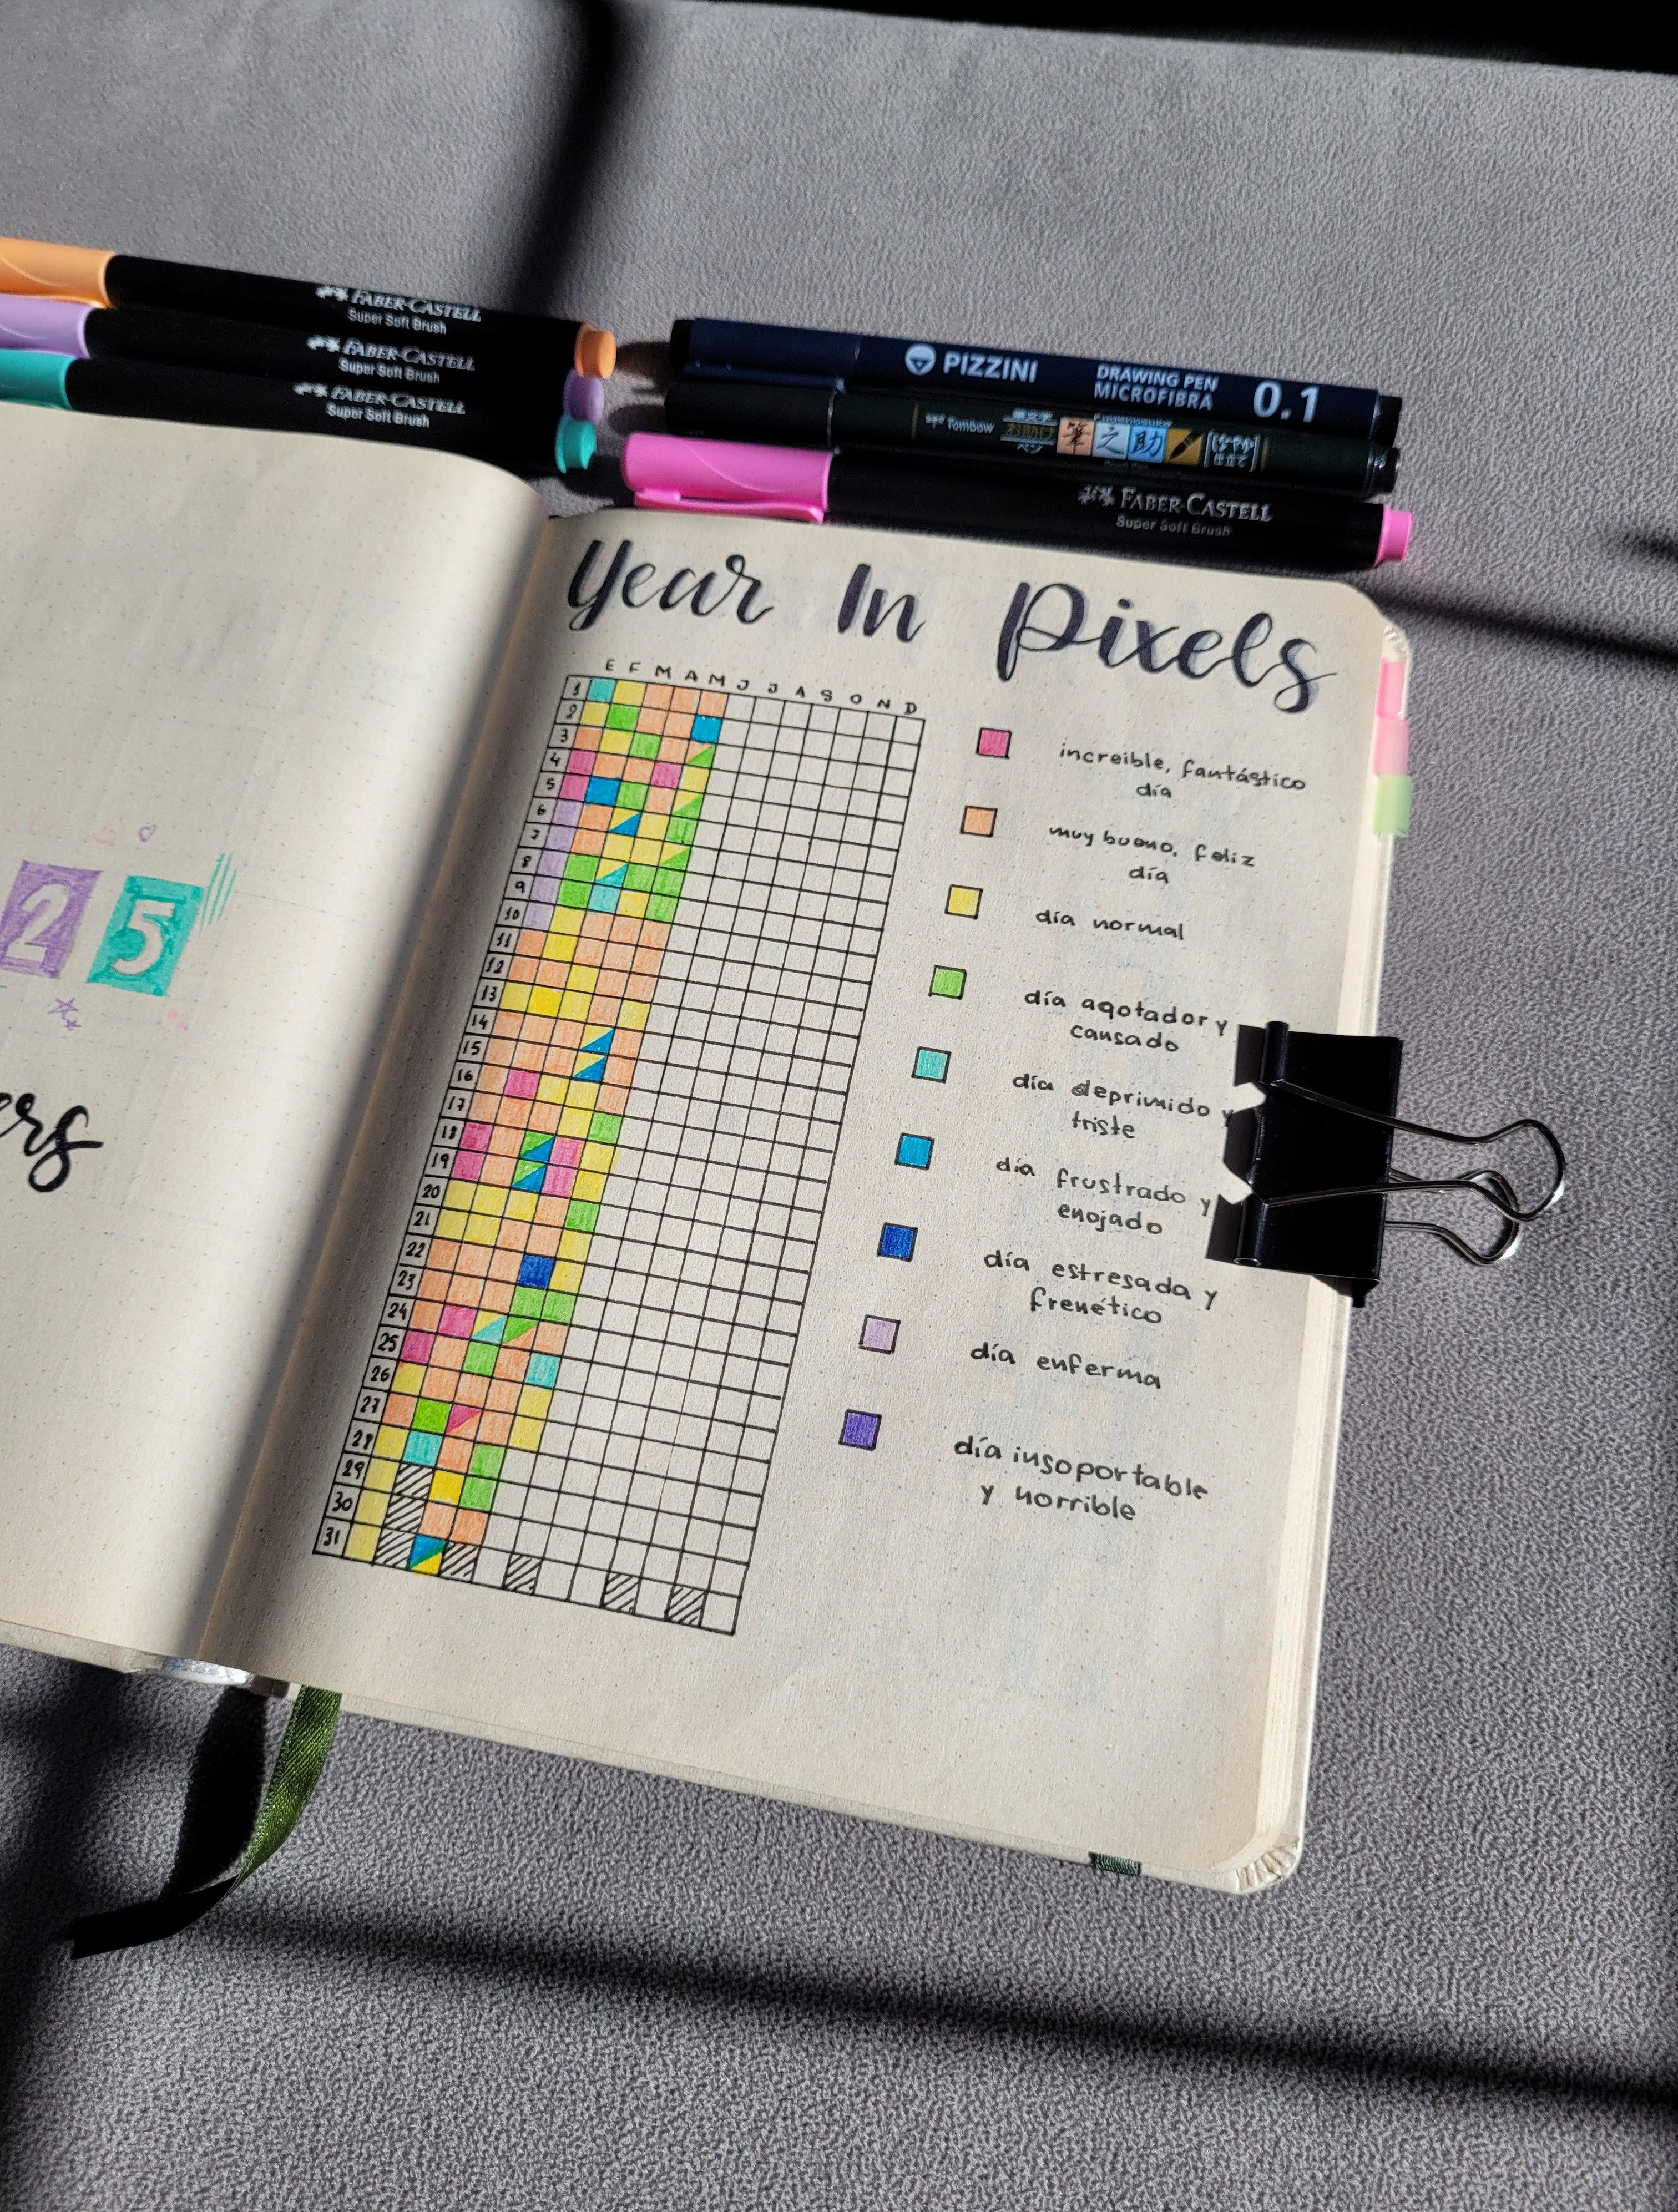 FABER-CASTELL
Super Soft Brush
FABER-CASTELL
Super Soft Brush
FABER-CASTELL
Super Soft Brush
PIZZINI DRAWING PEN MICROFIBRA 0.1
Tombow 筆文字 お助け ペン 筆之助 しなやか 仕立て
FABER-CASTELL
Super Soft Brush
25
ers
Year In Pixels
E F M A M J J A S O N D
1
2
3
4
5
6
7
8
9
10
11
12
13
14
15
16
17
18
19
20
21
22
23
24
25
26
27
28
29
30
31
increible, fantástico
día
muy bueno, feliz
día
día normal
día agotador y
cansado
día deprimido y
triste
día frustrado y
enojado
día estresada y
frenético
día enferma
día insoportable
y horrible